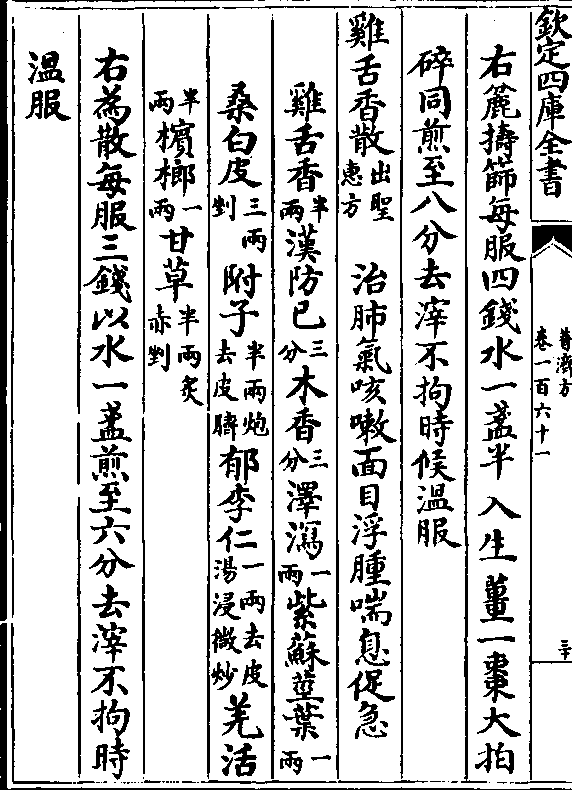 欽定四庫全書
普濟方
卷一百六十一
三十
右麄擣篩每服四錢水一盞半入生薑一棗大拍
碎同煎至八分去滓不拘時候溫服
雞舌香散出聖惠方 治肺氣咳嗽面目浮腫喘息促急
雞舌香半兩漢防已三分木香三分澤瀉一兩紫蘇莖葉一兩
桑白皮三兩剉附子半兩炮去皮臍郁李仁一兩去皮湯浸微炒羌活
半兩檳榔一兩甘草半兩炙赤剉
右為散每服三錢以水一盞煎至六分去滓不拘時
溫服